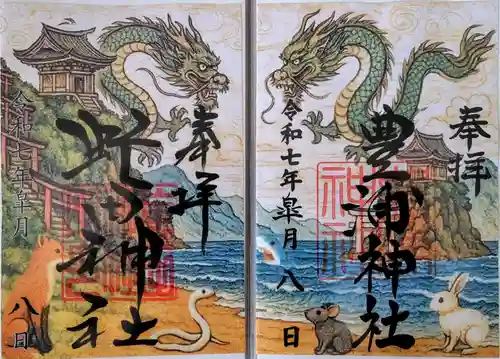 奉拝
豊浦神社
令和七年皐月八日
奉拝
神社
令和七年皐月八日